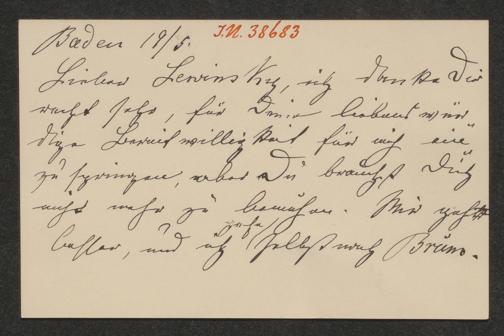 Baden 19/5.
I.N. 38683
Lieber Lewinsky, ich danke Dir
recht sehr, für Deine liebenswür
dige Bereitwilligkeit für mich ein
zu springen, aber Du brauchst Dich
nicht mehr zu bemühen. Mir geht's
besser, und ich gehe selbst nach Brünn.